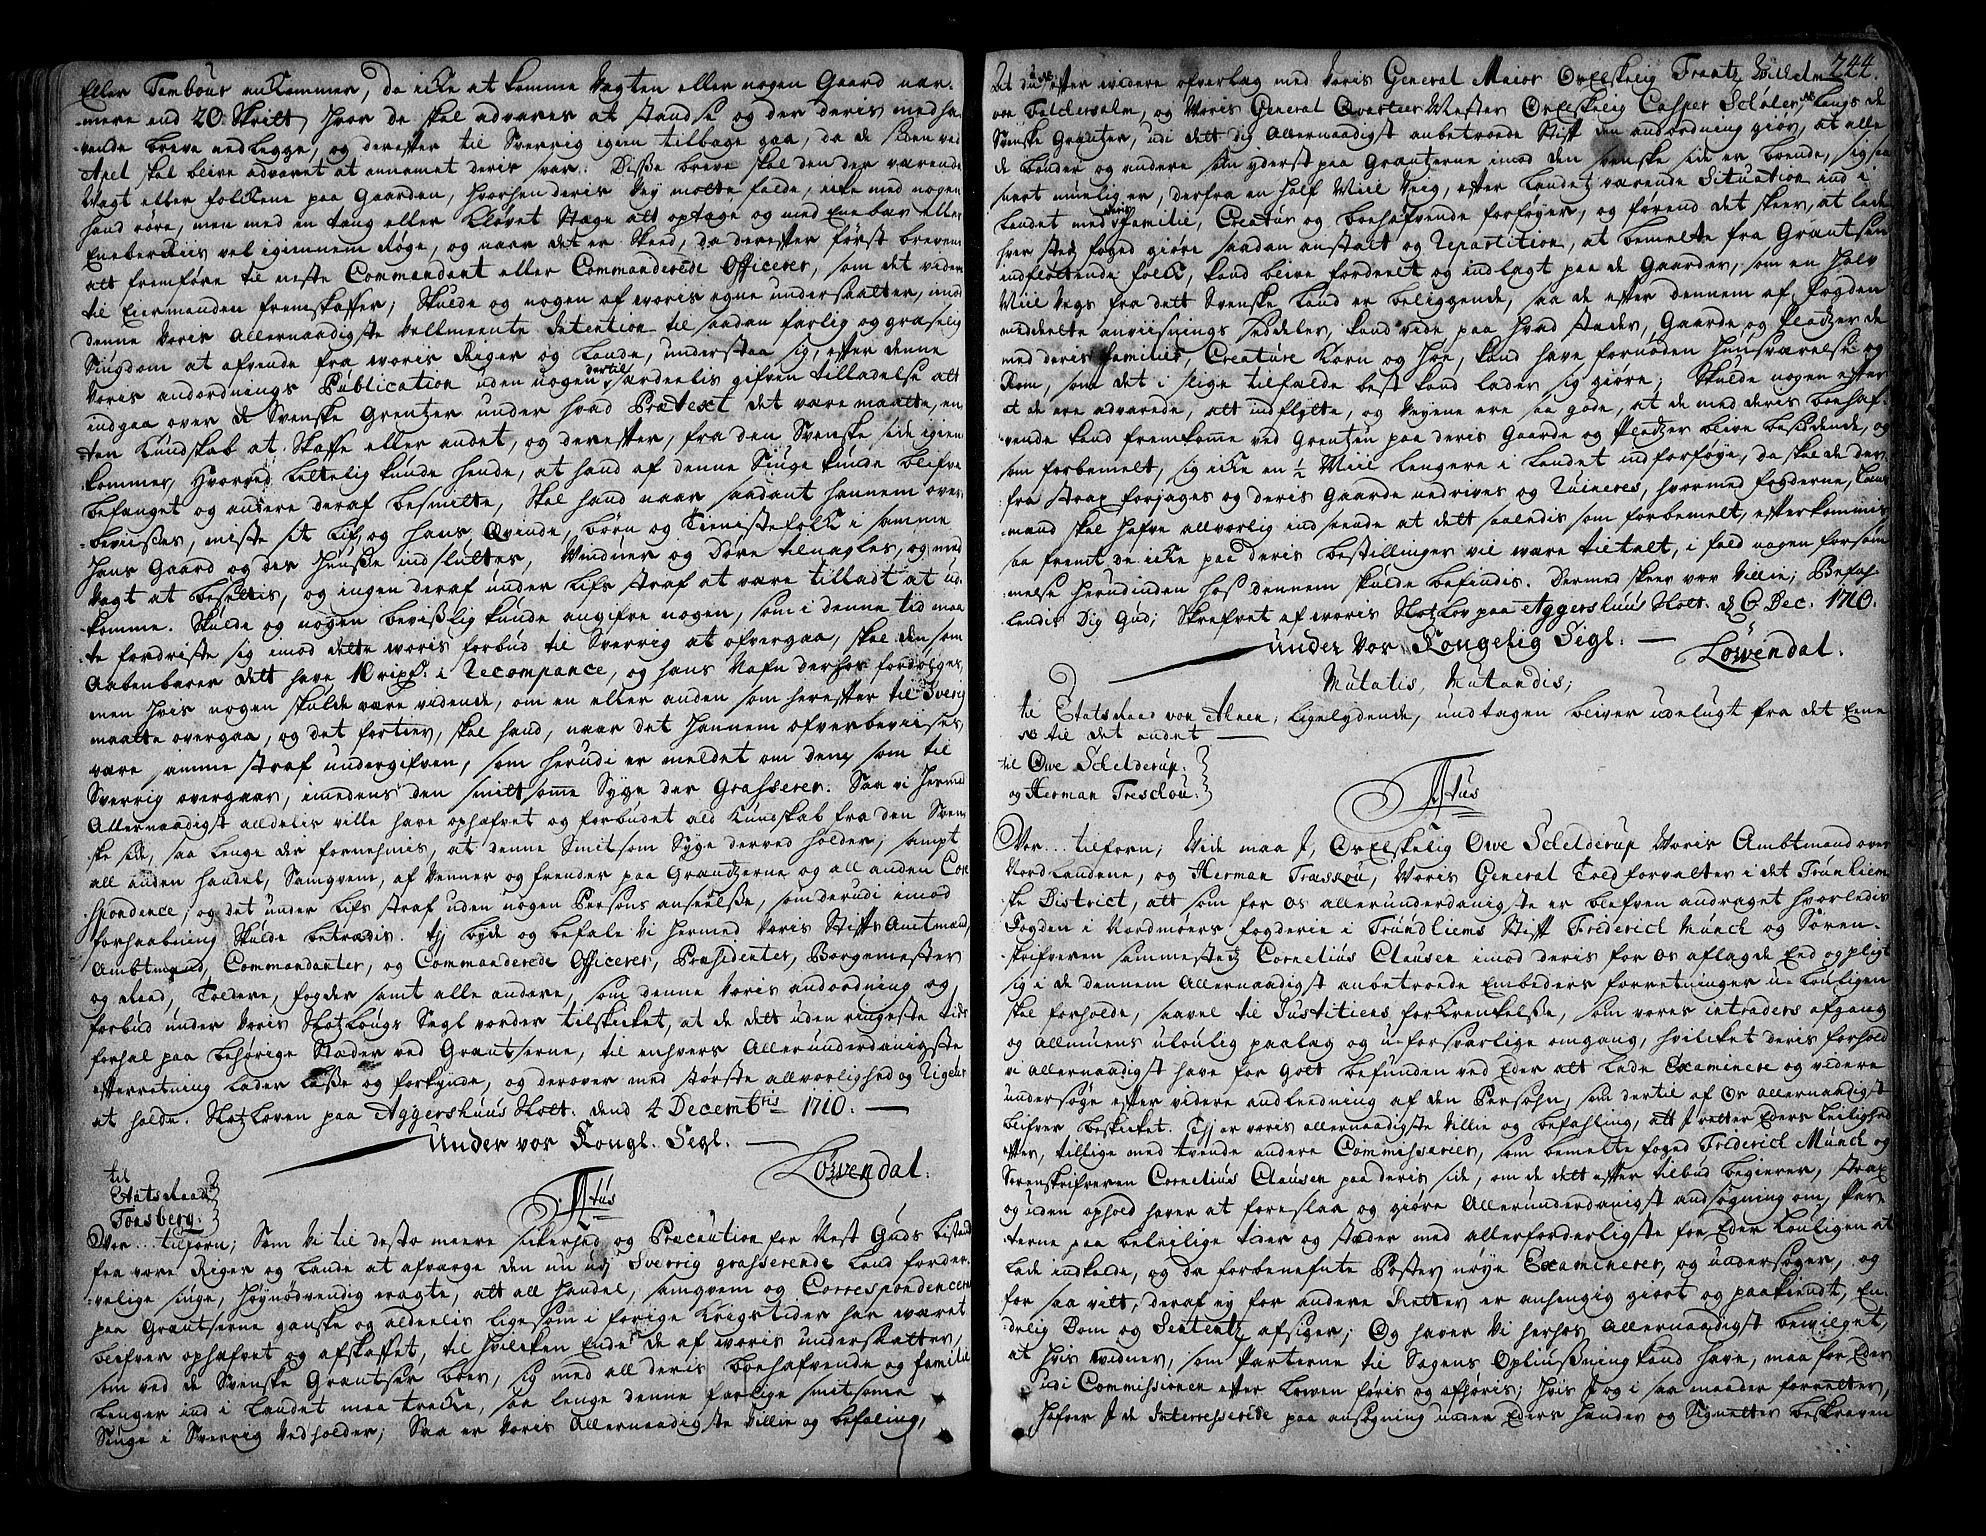 Eller Tambour ankommer, da icke at komme Vagten eller nogen Gaard nær-
mere end 20 Skrilt, hvor de skal advares at standse og der deris medha-
vende breve nedlegge, og derefter til Sverrig igien tilbage gaa, da de siden ved
Apel skal blive advaret at annamet deris svar: Disse breve skal den der værende
Vagt eller folckene paa Gaarden, hvorhen deris Vey motte falde, icke med nogen
haand røre, men med en tang eller kløvet Stage alt optage og med Enebær eller
EneberRiis vel igiennem Røge, og naar det er Skeed, da derefter først brevene
alt fremføre til neste Commandant eller Commanderede Officerer, som det videre
til Eiermanden fremskaffer; Skulde og nogen af voris egne undersaatter, imod
denne Voris Allernaadigste Vellmeente Intention til saadan farlig og græselig
Siugdom at afvende fra voris Riger og Lande, understaa sig, efter denne
Voris anordnings Publication uden nogen dertil særdeelis gifven tilladelse alt
indgaa over de Svenske Grentzer under hvad Prætext det være maatte, en-
ten Kundskab at Skaffe eller andet, og derefter, fra den Svenske side igien
kommer, Hvorved lettelig kunde hende, at hand af denne Siuge kunde blifve
befanget og andre deraf besmitte, Skal hand naar saadant hannem over-
beviises, miste sit Lif, og hans Qvinde, børn og Tienistefolk i samme
Hans Gaard og der Huuse indsluttes, Vinduer og Døre tilnagles, og med
Vagt at besættis, og ingen deraf under Lifs straf at være tilladt at ud-
komme. Skulde og nogen bevislig kunde angifve nogen, som i denne tid maa-
te fordriste sig imod dette voris forbud til Sverrig at ofvergaa, skal den, som
Aabenbarer det have 10 rixd: i Recompance, og hans Nafn derhos fordølges,
men hvis nogen skulde være vidende, om en eller anden som herefter til Sverig
maatte overgaa, og det fortier, skal hand, naar det hannem ofverbeviises,
være samme straf undergifven, som herudi er meldet om dem, som til
Sverrig overgaar, imedens den smitsomme Syge der Grasserer. Saa vi hermed
Allernaadigst alldelis ville have ophæfvet og forbudet ald Kundskab fra den Sven-
ske side, saa lenge der fornehmis, at denne Smitsom Syge derved holder; sampt
all anden handel, Samqvem, af Venner og frender paa Grændtzerne og all anden Cor-
spondence; og det under Lifs straf uden nogen Persons anseelse, som derudi imod
forhaabning Skulde betrædis. Thj byde og befale Vi hermed Voris StiftsAmtmænd,
Ambtmænd, Commandanter, og Commanderede Officerer, Præsidenter, Borgemester
og Raad, Toldere, fogder samt alle andre, som denne Voris anordning og
forbud under Voris SlotzLougs Segl vorder tilskicket, at de det uden ringeste tids
forhal paa behørige Stæder ved Grændtserne, til enhvers Allerunderdanigste
efterretning lader læse og forkynde, og derover med største allvorlighed og Rigeur
at holde. SlotzLoven paa Aggershuus Slott. dend 4 Decembris 1710.
Under vor Kongl. Segl.
Løwendal.
til
Etatsraad
Tonsberg.
Vor ... tilforn; Som Vi til desto meere sickerhed og Præcaution for Nest Guds bistand
fra vore Riger og Lande at afværge den nu udj Sverrig grasserende Land forder-
velige siuge, høynødvendig eragte, alt all handel, samqvem og Correspondence
paa Grændtserne gandske og aldeelis ligesom i forige Krigstider har været
blifver ophæfvet og afskaffet, til hvilcken Ende de af voris undersaatter,
som ved de Svenske Grændtser boer, sig med all deris boehafvende og familie
lenger ind i Landet maa trecke, saa lenge denne farlige smitsome
Siuge i Sverrig Vedholder; Saa er Voris Allernaadigste Villie og befaling,
244.
At du efter videre ofverlag med Voris General Maior OrElskelig Frantz Wilhelm
von Feldersalm, og Voris General QvarteerMester OrElskelig Casper Schøler langs de
Svenske Grentzer, udi dett dig Allernaadigst anbetroede Stift den andordning giør, at alle
de bønder og andre som yderst paa Grentzerne imod den Svenske side er boende, sig saa
snart muelig er, derfra en half Miil Veig, efter landet værende Situation ind i
Landet med deris Familie, Creatur og boehafvende forføyer, og førend det skeer, at lade
hver sted foged giøre saadan anstalt og Repartition, at bemelte fra Grentsen
indfløttende folck, kand blive fordeelt og indlagt paa de Gaarder, som en halv
Miil Vegs fra dett Svenske Land er beliggende, saa de efter dennem af fogden
meddeelte anviisnings sedeler, kand vide paa hvad stæder, Gaarde og Pladtzer de
med deris familier, Creature Korn og Høe, kand have fornøden Huusværelse og
Rom, som det i slige tilfælde best kand lader sig giøre; Skulde nogen efter
at de ere advarede, alt indflytte, og Veyene ere saa gode, at de med deris boehaf-
vende kand fremkomme ved Grentzen paa deris Gaarde og Pladtzer blive besiddende, og
som forbemelt, sig icke en ½ Miil lengere i Landet indforføye, da skal de der-
fra strax forjages og deris Gaarde nedrives og Ruineres, hvormed fogderne, Lens-
mænd skal hafve allvorlig indseende at dett saaledis som forbemelt, efterkommis
saa fremt de icke paa deris bestillinger vil være tiltalt, i fald nogen forsøm-
melse herudinden hos dennem skulde befindis. Dermed skeer vor Villie; Befal-
landis Dig Gud; Skrefvet af voris SlotzLov paa Aggershuus Slott. d 6 Dec. 1710.
Under Vor Kongelig Segl.
Løwendal.
Mutatis, Mutandis;
til Etatsraad von Ahnen, ligelydende, undtagen bliver udelugt fra det Eene
NB til det andet
til Owe Schelderup.
og Herman Treschou.
Vor ... tilforn; Vide maa I, OrElskelig Owe Schelderup Voris Ambtmand over
Nordlandene, og Herman Træskou, Voris General Toldforvalter i det Trundhiem-
ske District, alt som for os allerunderdanigste er blefven andraget hvorledis
Fogden i Nordmøers fogderie i Trundhiems Stift Friderich Munch og Soren-
skrifveren sammesteds Cornelius Clausen imod deris for os aflagde Eed og pligt
sig i de dennem Allernaadigst anbetroede Embeders forretninger u-louligen
skal forholde, saavel til Justitiens forkrenkelse, som vores intraders afgang
og Allmuens ulovlig paalag og u-forsvarlige omgang, hvilcket deris forhold
vi allernaadigst have for Gott befunden ved Eder alt lade Examinere og videre
undersøge efter videre andleedning af den Persohn, som dertil af Os allernaadigst
blifver beskicket. Thj er voris allernaadigste Villie og befahling, att I retter Eders leilighed
efter, tillige med tvende andre Commissarier, som bemelte foged Friderich Munch og
Sorenskrifveren Cornelius Clausen paa deris side, om de dett efter tilbud begierer, strax
og uden ophold haver at foreslaa og giøre Allerunderdanigst andsøgning om, Par-
terne paa beleilige tider og stæder med allerforderligste for Eder Louligen at
Lade indkalde, og da forbenefnte Poster nøye Examinerer, og undersøger, og
for saa vitt, deraf ey for andre Retter er anhengig giort og paakiendt, En-
delig Dom og Sententz afsiger; Og haver Vi herhos Allernaadigst bevilget,
at hvis vidner, som Parterne til Sagens Opliusning kand have, maa for Eder
udi Commissionen efter Loven føris og afhøris; Hvis I og i saa maader forretter,
Hafver I de Interesserede paa ansøgning under Eders Hænder og Signetter beskreven